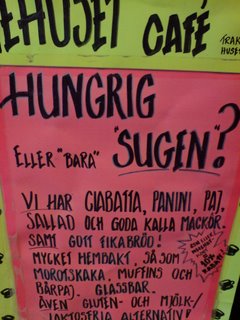 EHUSET CAFÉ
TRAK
HUSE
HUNGRIG
ELLER "BARA" "SUGEN"?
VI HAR CIABATTA, PANINI, PAJ,
SALLAD OCH GODA KALLA MACKOR.
SAMT GOTT FIKABRÖD!
MYCKET HEMBAKT, SÅ SOM
MOROTSKAKA, MUFFINS OCH
BÄRPAJ. GLASSBAR.
ÄVEN GLUTEN- OCH MJÖLK-/
LAKTOSFRIA ALTERNATIV!